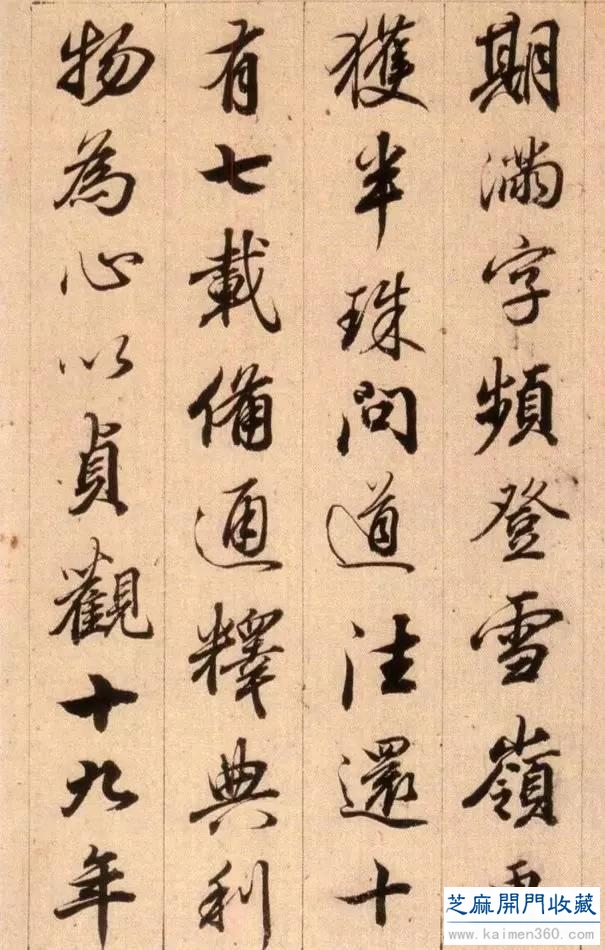 期滿字頻登雪嶺
獲半珠問道往還十
有七載備通釋典利
物為心以貞觀十九年
芝麻開門收藏
www.kaimen360.com